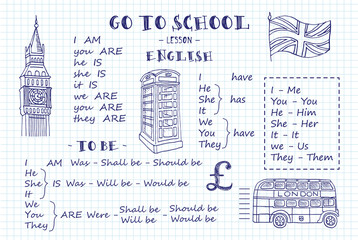 GO TO SCHOOL
- LESSON -
ENGLISH
I AM
you ARE
he IS
she IS
it IS
we ARE
you ARE
they ARE
I have
He
She has
It
We
You have
They
I - Me
You - You
He - Him
She - Her
It - It
we - Us
They - Them
- TO BE -
I AM Was - Shall be - Should be
He
She IS Was - Will be - Would be
It
We
You ARE Were - Shall be - Should be
They Will be - Would be
£
I LONDON